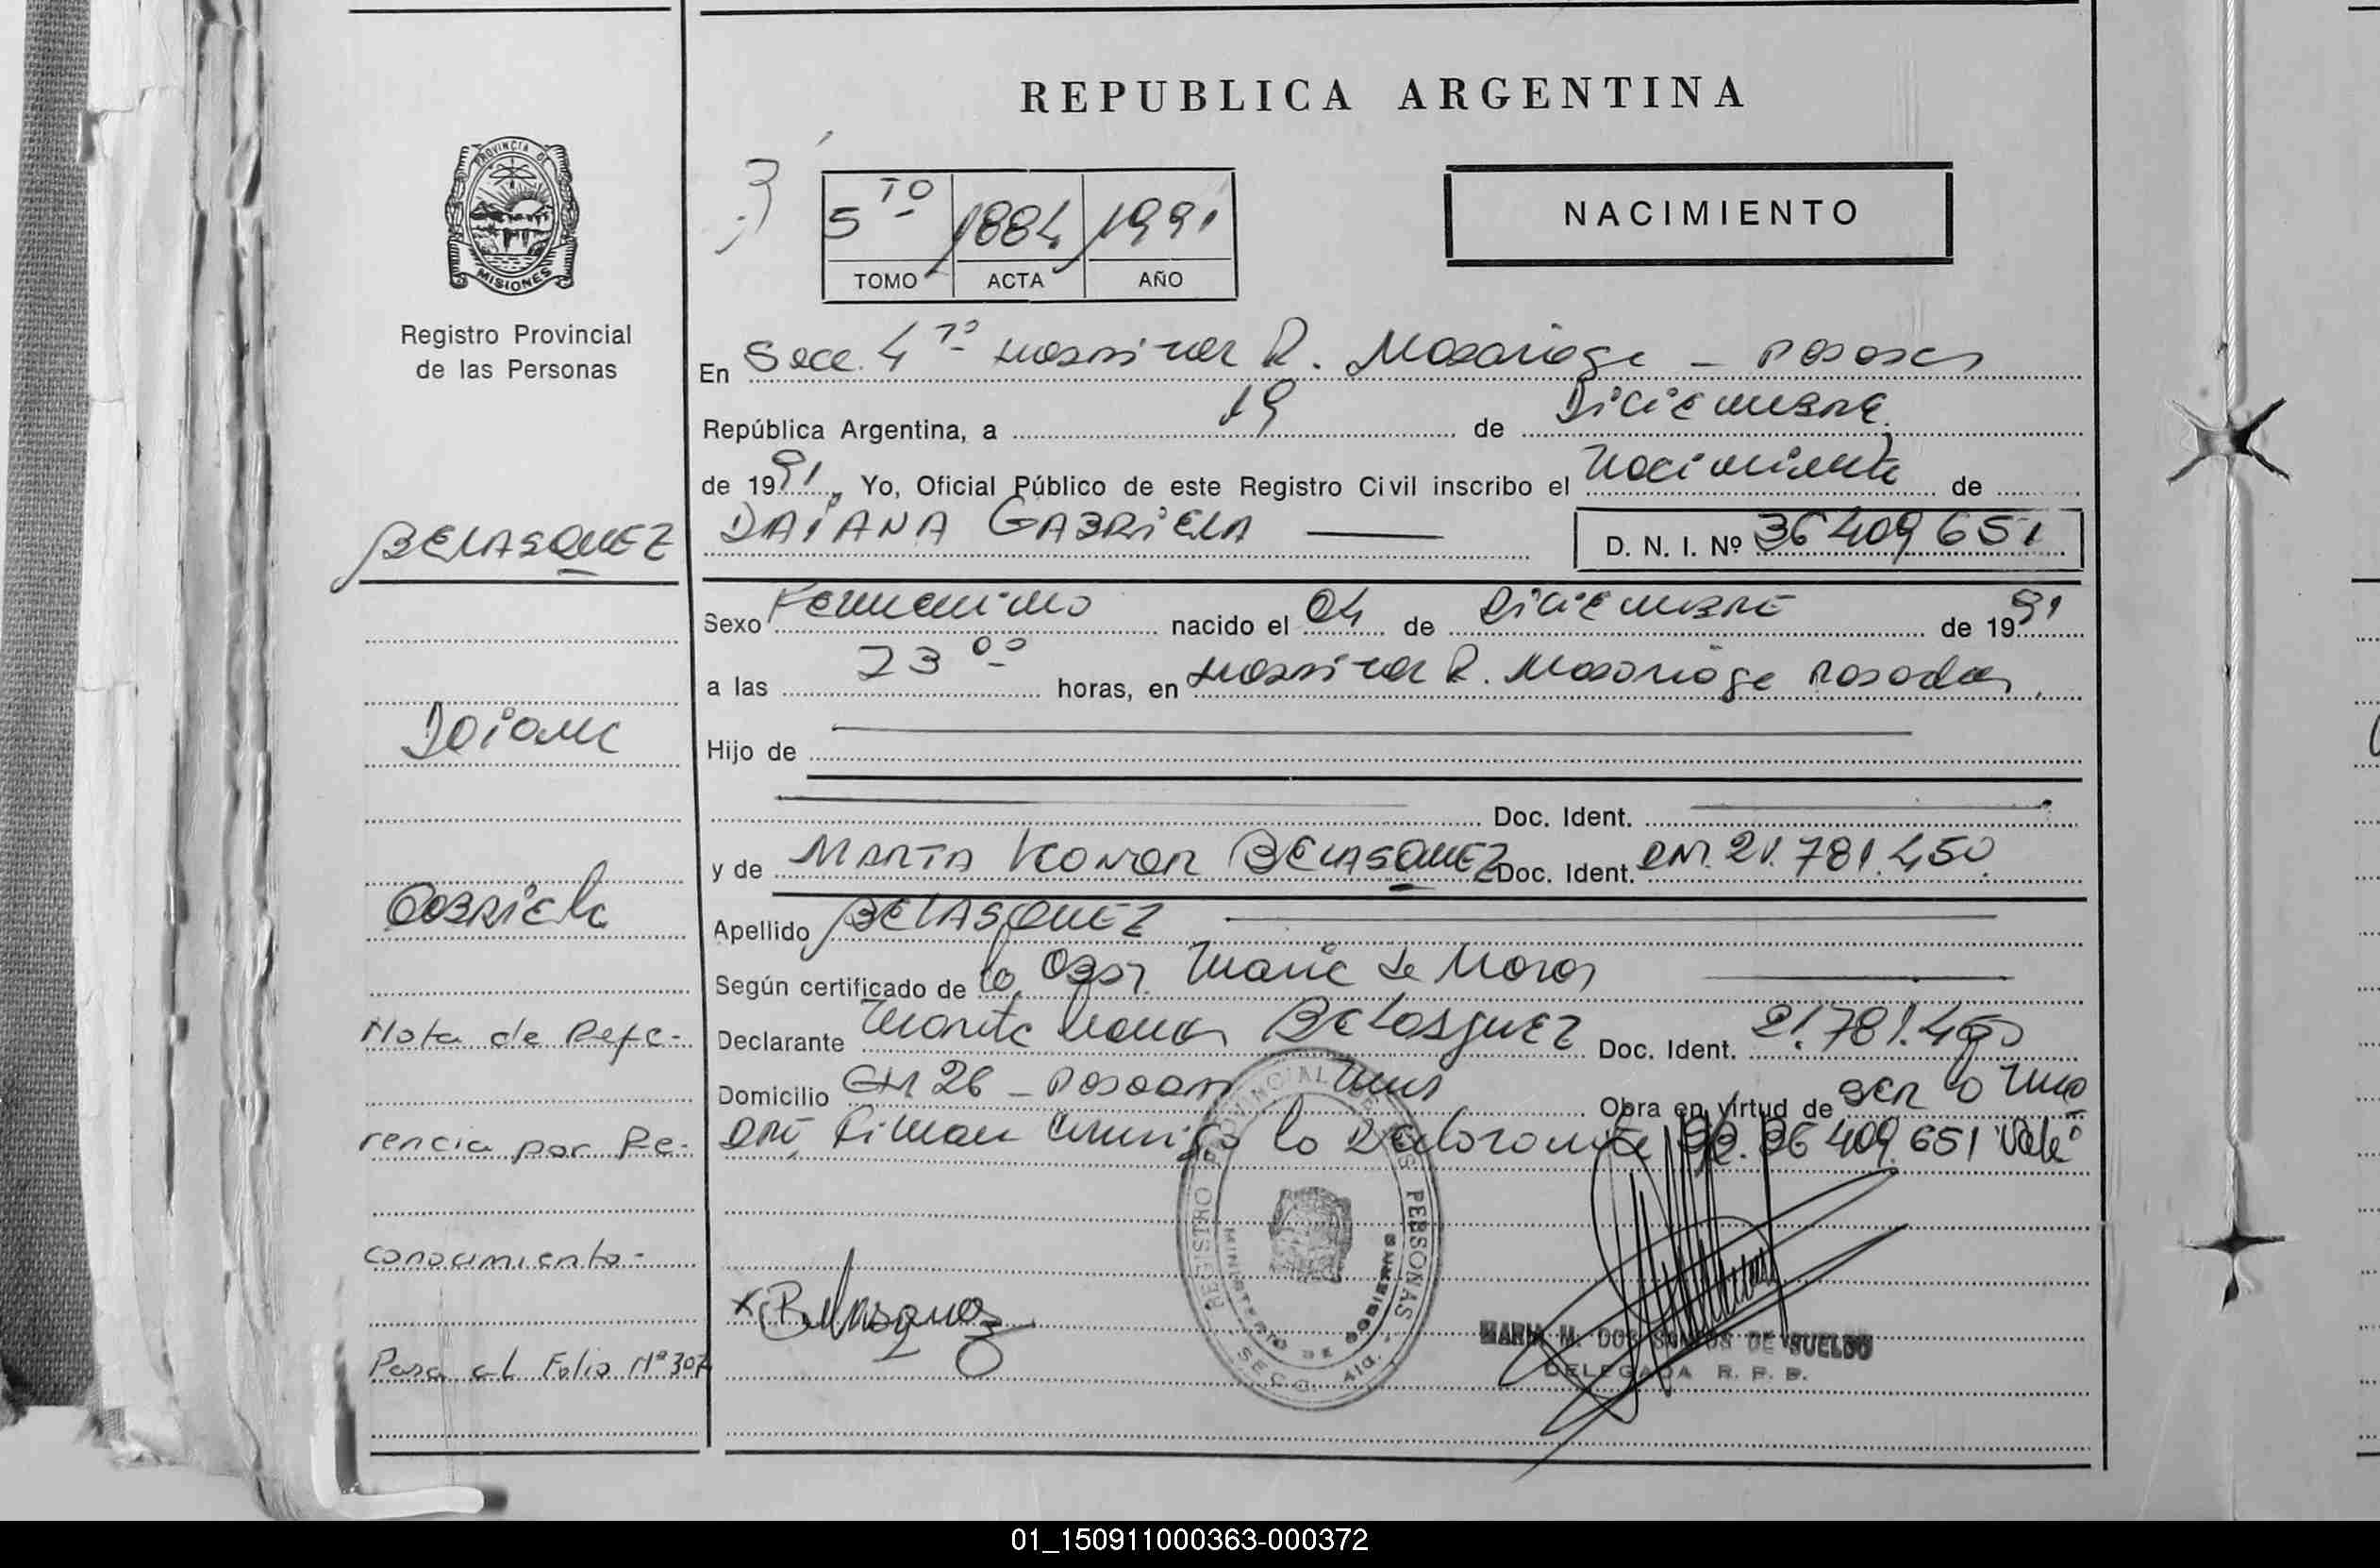 REPUBLICA ARGENTINA
PROVINCIA DE
MISIONES
Registro Provincial
de las Personas
5to 1884 1991
TOMO ACTA AÑO
NACIMIENTO
En Secc. 4to Hospital R. Madariaga - Posadas
República Argentina, a 19 de Diciembre
de 1991, Yo, Oficial Público de este Registro Civil inscribo el Nacimiento de
BELASQUEZ
DAIANA GABRIELA
D. N. I. Nº 36 409 651
Sexo Femenino nacido el 04 de Diciembre de 1991
a las 23 00 horas, en Hospital R. Madariaga Posadas
Daiana
Hijo de
Doc. Ident.
y de MARTA LEONOR BELASQUEZ Doc. Ident. DNI. 21.781.450
Gabriela
Apellido BELASQUEZ
Según certificado de la Obst. Maria de
Declarante Marta Leonor Belasquez Doc. Ident. 21.781.450
Domicilio CH 26 - Posadas Mnes Obra en virtud de ser la
DNI, Firman conmigo la Declarante 36 409 651 Vale
Nota de Refe-
rencia por Re-
conocimiento-
Pasa al Folio Nº 307
x Belasquez
REGISTRO PROVINCIAL DE LAS PERSONAS
MINISTERIO DE GOBIERNO
SECC. 4ta.
MARIA M. DOS SANTOS DE SUELDO
DELEGADA R. P. P.
01_150911000363-000372